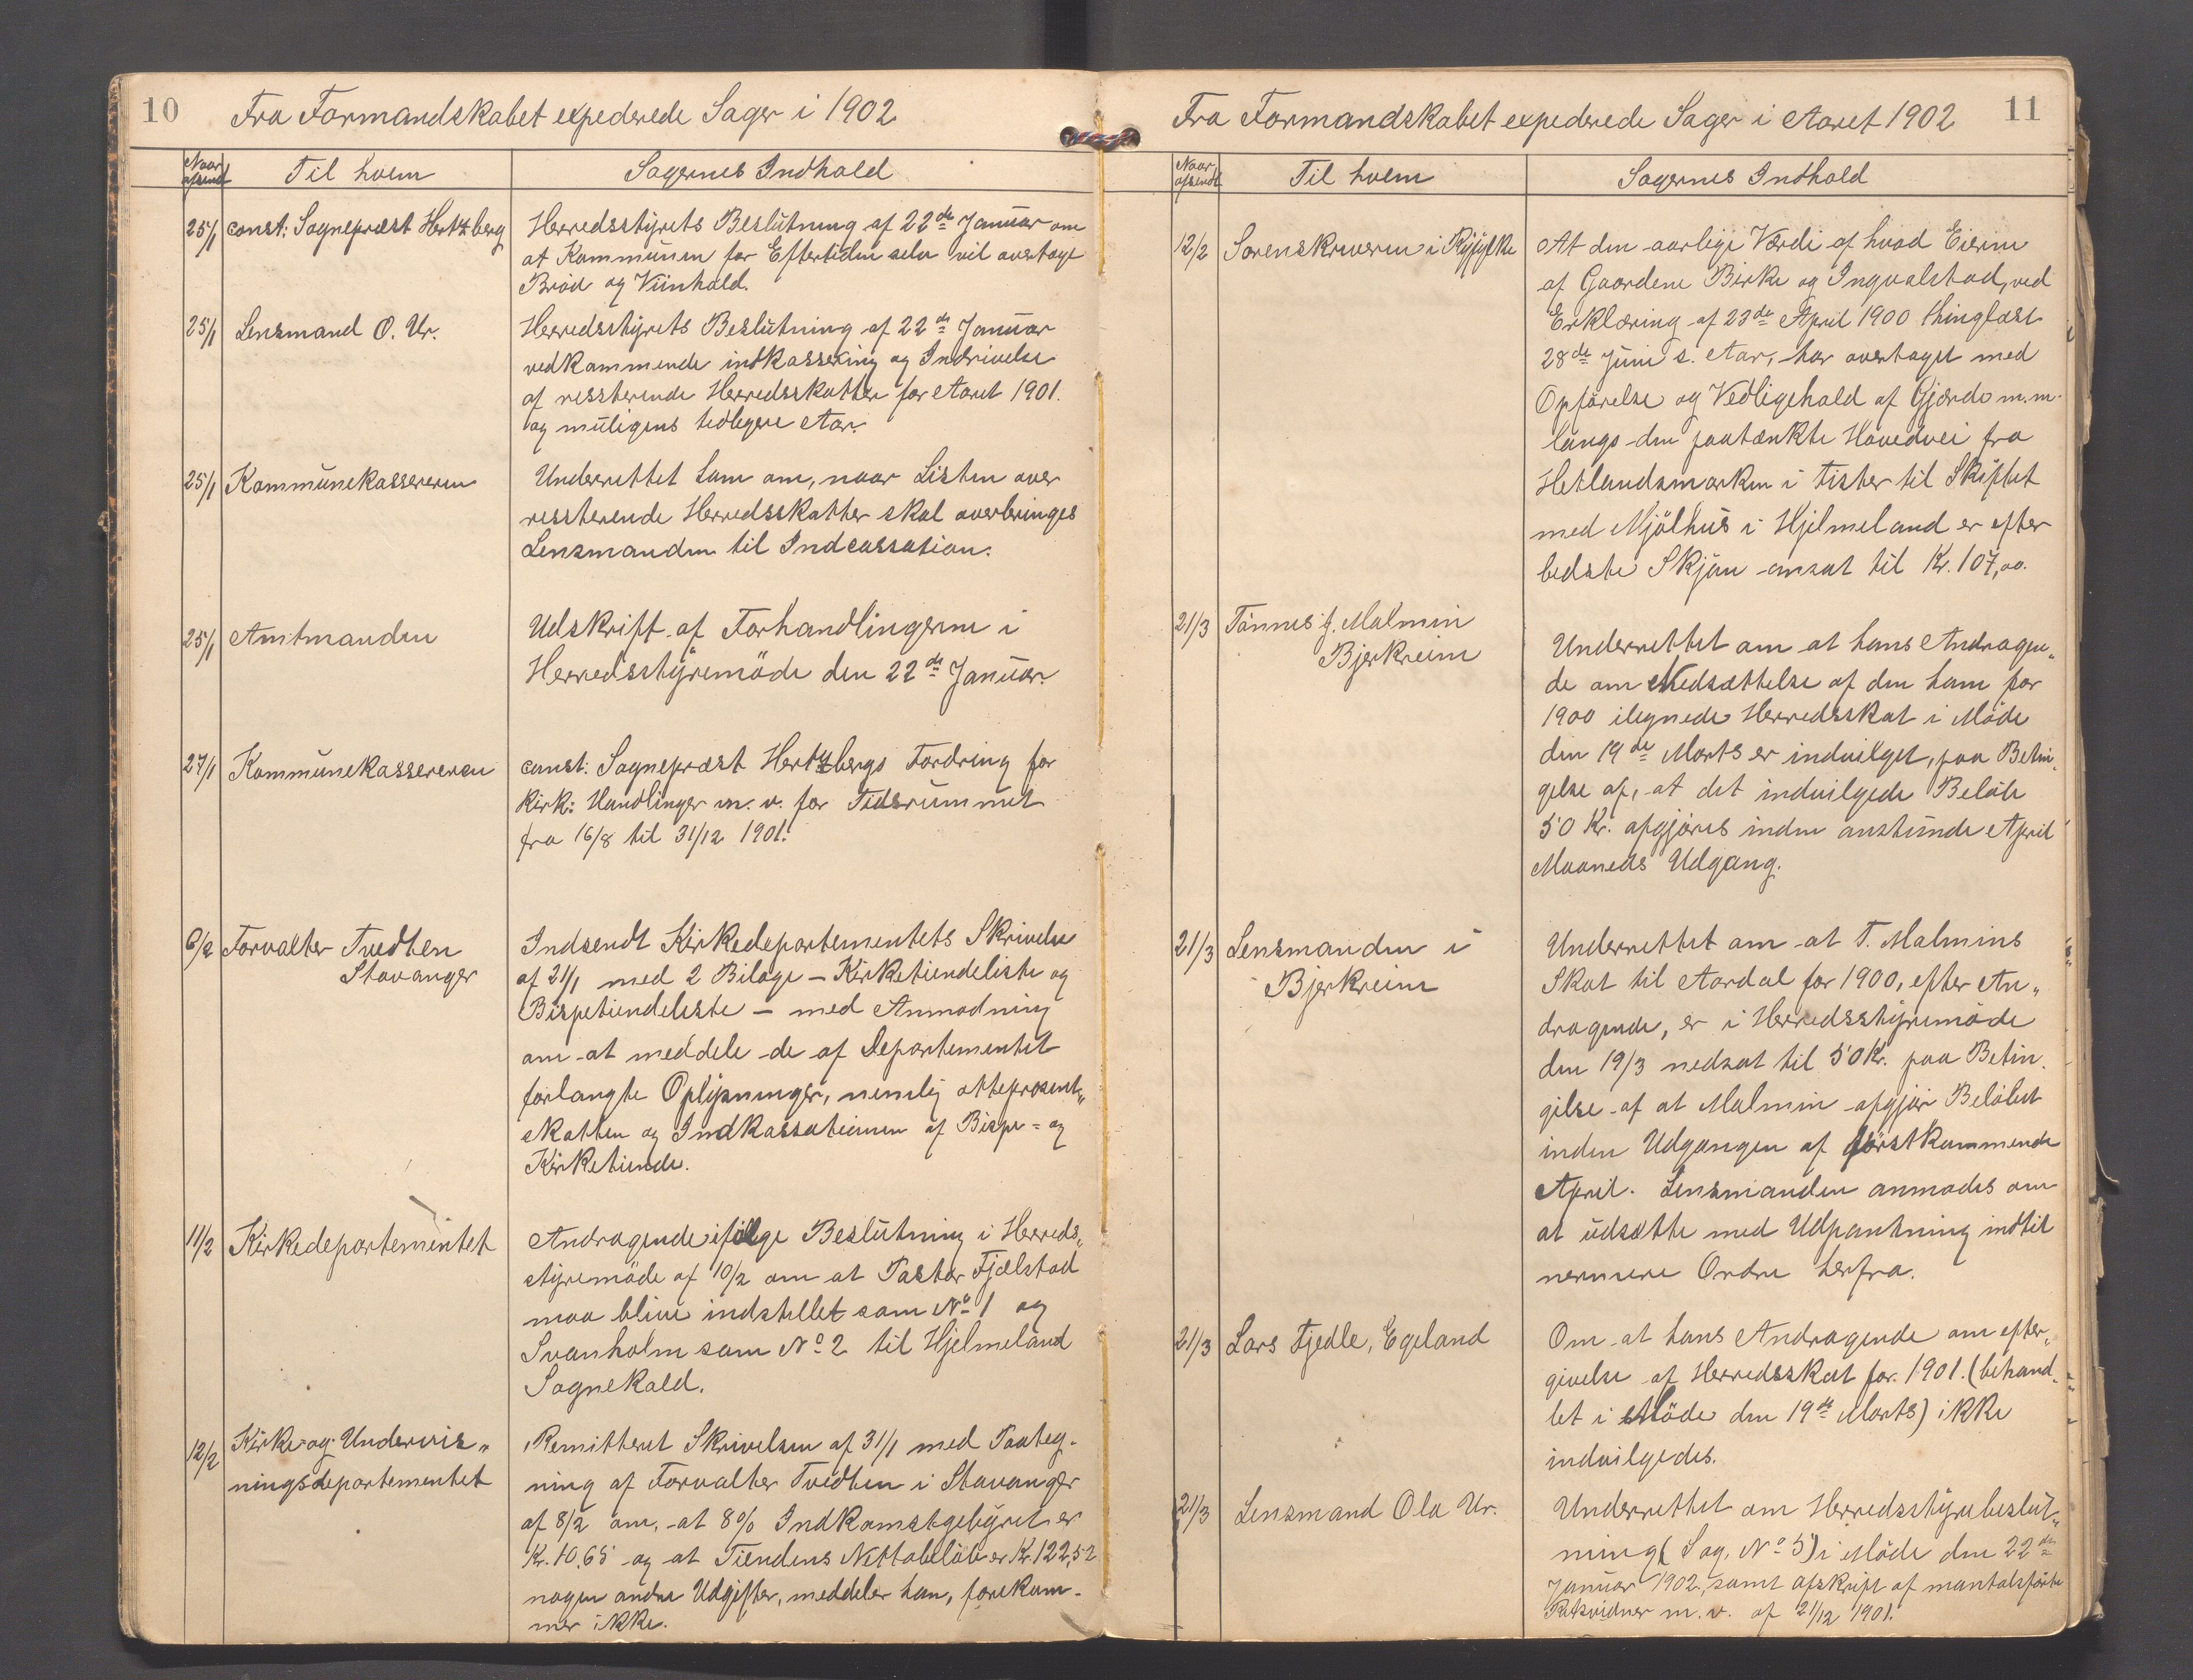 10
Fra Formandskabet expederede Sager i 1902
Naar afsendt
Til hvem
Sagernes Indhold
25/1
const: Sognepræst Hertzberg
Herredsstyrets Beslutning af 22de Januar om
at Kommunen for Eftertiden selv vil overtage
Brød og Viinhold.
25/1
Lensmand O. Ur.
Herredsstyrets Beslutning af 22de Januar
vedkommende indkassering og Inddrivelse
af ressterende Herredsskatter for Aaret 1901.
og muligens tidligere Aar.
25/1
Kommunekassereren
Underrettet ham om, naar Listen over
ressterende Herredsskatter skal overbringes
Lensmanden til Indcassation.
25/1
Amtmanden
Udskrift af Forhandlingerne i
Herredsstyremöde den 22de Januar.
27/1
Kommunekassereren
const: Sognepræst Hertzbergs Fordring for
kirk: Handlinger m. v. for Tidsrummet
fra 16/8 til 31/12 1901.
6/2
Forvalter Tvedten
Stavanger
Indsendt Kirkedepartementets Skrivelse
af 21/1 med 2 Bilage – Kirketiendeliste og
Bispetiendeliste – med Anmodning
om at meddele de af Departementet
forlangte Oplysninger, nemlig otteprosent„
skatten og Indkassationen af Bispe= og
Kirketiende.
11/2
Kirkedepartementet
Andragende ifölge Beslutning i Herreds„
styremöde af 10/2 om at Pastor Fjelstad
maa blive indstillet som No 1 og
Svanholm som No 2 til Hjelmeland
Sognekald.
12/2
Kirke-og Undervis„
ningsdepartementet
Remitteret Skrivelsen af 31/1 med Paateg-
ning af Forvalter Tvedten i Stavanger
af 8/2 om, at 8% Indkomstgebyret er
Kr. 10,65 og at Tiendens Nettobelöb er Kr. 122,52
nogen andre Udgifter, meddeler han, forekom-
mer ikke.
Fra Formandskabet expederede Sager i Aaret 1902
11
Naar afsendt
Til hvem
Sagernes Indhold
12/2
Sorenskriveren i Ryfylke
At den aarlige Værdi af hvad Eierne
af Gaardene Birke og Ingvalstad, ved
Erklæring af 23de April 1900 thinglæst
28de Juni s. Aar, har overtaget med
Opförelse og Vedligehold af Gjærde m.m.
langs den paatænkte Hovedvei fra
Hetlandsmarken i Fister til Skiftet
med Mjölhus i Hjelmeland er efter
bedste Skjön ansat til Kr. 107,00.
21/3
Tönnes J. Malmin
Bjerkreim
Underrettet om at hans Andragen„
de om Nedsættelse af den ham for
1900 ilegnede Herredsskat i Möde
den 19de Marts er indvilget, paa Betin„
gelse af, at det indvilgede Belöb
50 Kr. afgjöres inden anstundende April
Maaneds Udgang.
21/3
Lensmanden i
Bjerkreim
Underrettet om at T. Malmins
Skat til Aardal for 1900, efter An„
dragende, er i Herredsstyremöde
den 19/3 nedsat til 50 Kr. paa Betin.
gelse af at Malmin afgjör Belöbet
inden Udgangen af förstkommende
April. Lensmanden anmodes om
at udsætte med Udpantning indtil
nermere Ordre herfra.
21/3
Lars Fjedle, Egeland
Om at hans Andragende om efter„
givelse af Herredsskat for 1901. (behand„
let i Möde den 19de Marts) ikke
indvilgedes.
21/3
Lensmand Ola Ur.
Underrettet om Herredsstyrebeslut„
ning (Sag, No 5) i Möde den 22de
Januar 1902, samt afskrift af mantalsförte
m. v. af 21/12 1901.